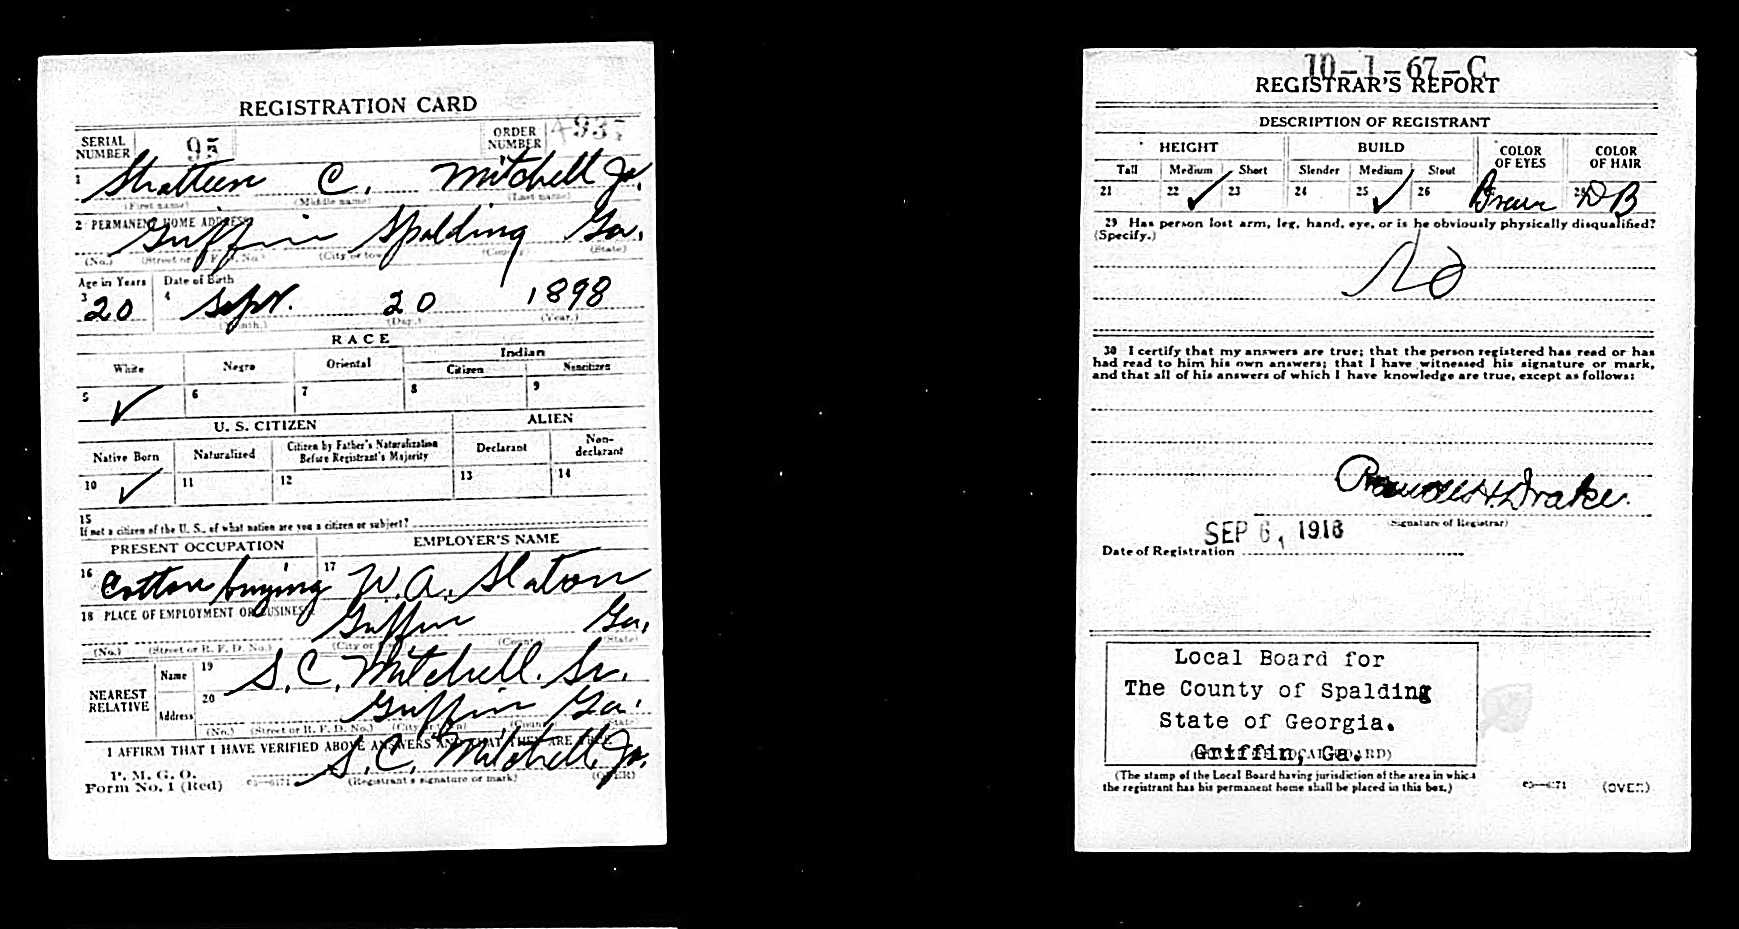 REGISTRATION CARD
SERIAL NUMBER 95 ORDER NUMBER A 937
1 Stratteen C. Mitchell Jr.
(First name) (Middle name) (Last name)
2 PERMANENT HOME ADDRESS
Griffin Spalding Ga.
(No.) (Street or R. F. D. No.) (City or town) (County) (State)
Age in Years Date of Birth
3 20 4 Sept. 20 1898
(Month.) (Day.) (Year.)
RACE
White Negro Oriental Indian
Citizen Noncitizen
5 ✓ 6 7 8 9
U. S. CITIZEN ALIEN
Native Born Naturalized Citizen by Father's Naturalization Before Registrant's Majority Declarant Non-declarant
10 ✓ 11 12 13 14
15
If not a citizen of the U. S., of what nation are you a citizen or subject?
PRESENT OCCUPATION EMPLOYER'S NAME
16 Cotton buying 17 W. A. Slaton
18 PLACE OF EMPLOYMENT OR BUSINESS
Griffin Ga.
(No.) (Street or R. F. D. No.) (City or (County) (State)
NEAREST RELATIVE Name 19 S. C. Mitchell. Sr.
Address 20 Griffin Ga.
(No.) (Street or R. F. D. No.) (City or town) (County) (State)
I AFFIRM THAT I HAVE VERIFIED ABOVE ANSWERS AND THAT THEY ARE TRUE
P. M. G. O.
Form No. 1 (Red) 03—6171 S. C. Mitchell. Jr.
(Registrant's signature or mark) (OVER)
10-1-67-C
REGISTRAR'S REPORT
DESCRIPTION OF REGISTRANT
HEIGHT BUILD COLOR OF EYES COLOR OF HAIR
Tall Medium Short Slender Medium Stout
21 22 ✓ 23 24 25 ✓ 26 Brown DB
29 Has person lost arm, leg, hand, eye, or is he obviously physically disqualified?
(Specify.)
No
30 I certify that my answers are true; that the person registered has read or has
had read to him his own answers; that I have witnessed his signature or mark,
and that all of his answers of which I have knowledge are true, except as follows:
H. Drake.
(Signature of Registrar)
Date of Registration SEP 6, 1918
Local Board for
The County of Spalding
State of Georgia.
Griffin, Ga.
(The stamp of the Local Board having jurisdiction of the area in which
the registrant has his permanent home shall be placed in this box.)
03—6171 (OVER)